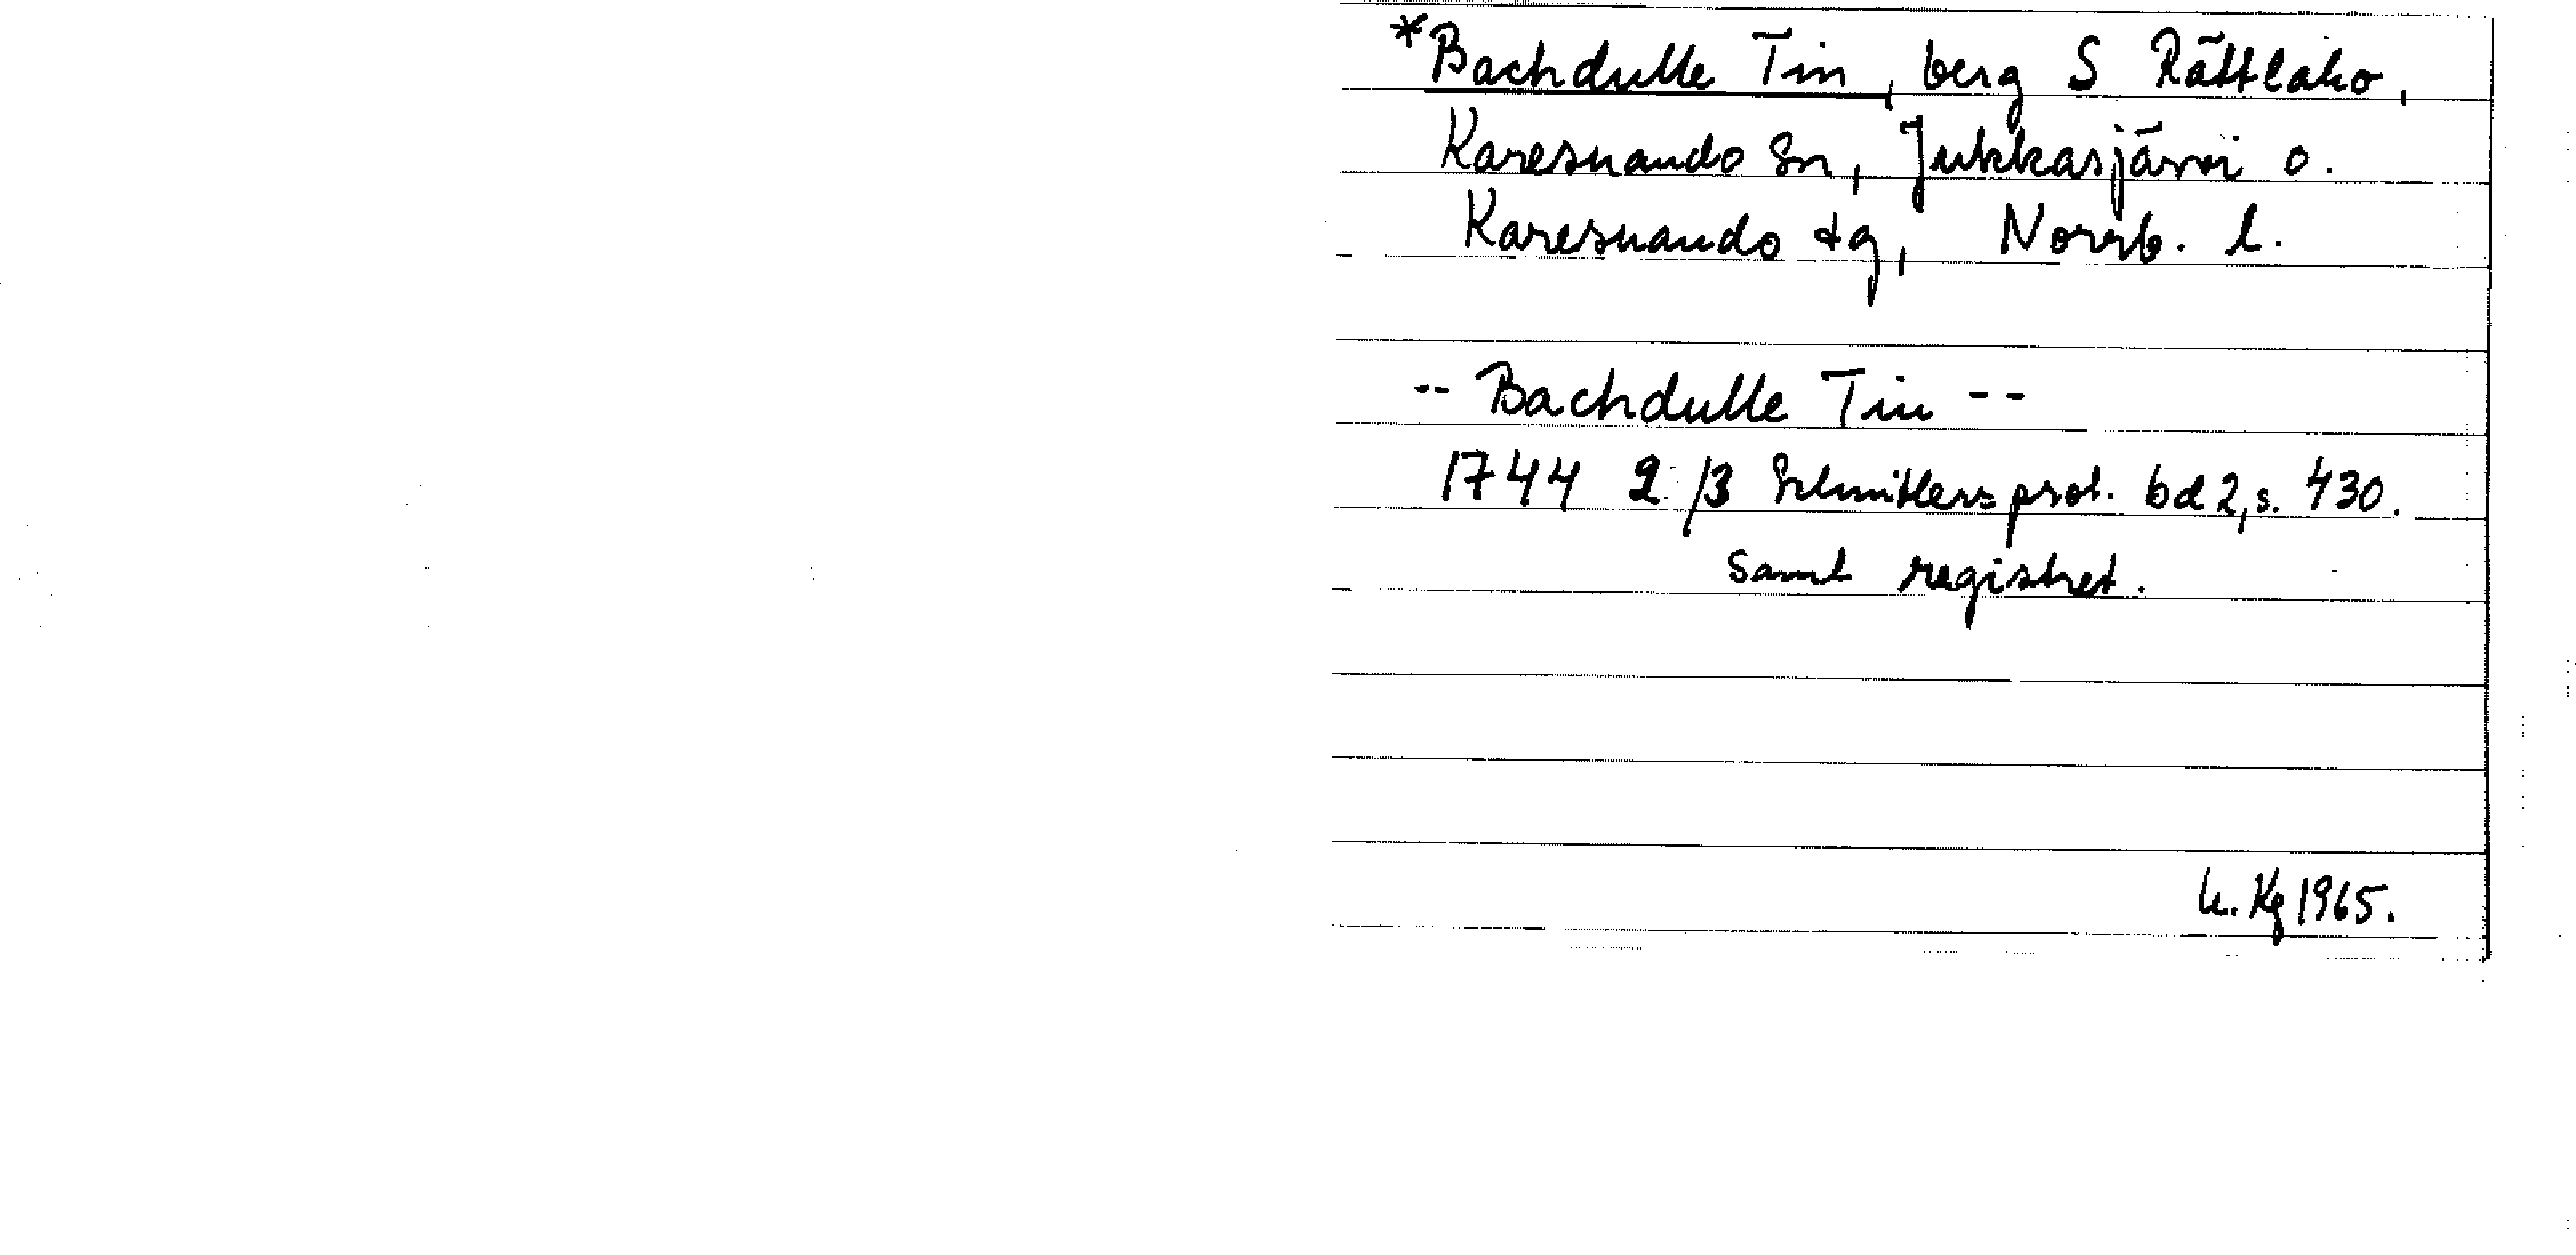 *Bachdulle Tin, berg S Rättlaho,
Karesuando sn, Jukkasjärvi o.
Karesuando tg, Norrb. l.
-- Bachdulle Tin --
1744 2/3 Schnitlers prot. bd 2, s. 430.
samt registret.
K. Kg 1965.